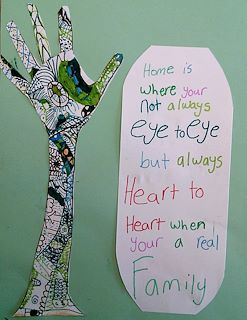 Home is
where your
not always
eye to eye
but always
Heart to
Heart when
your a real
Family